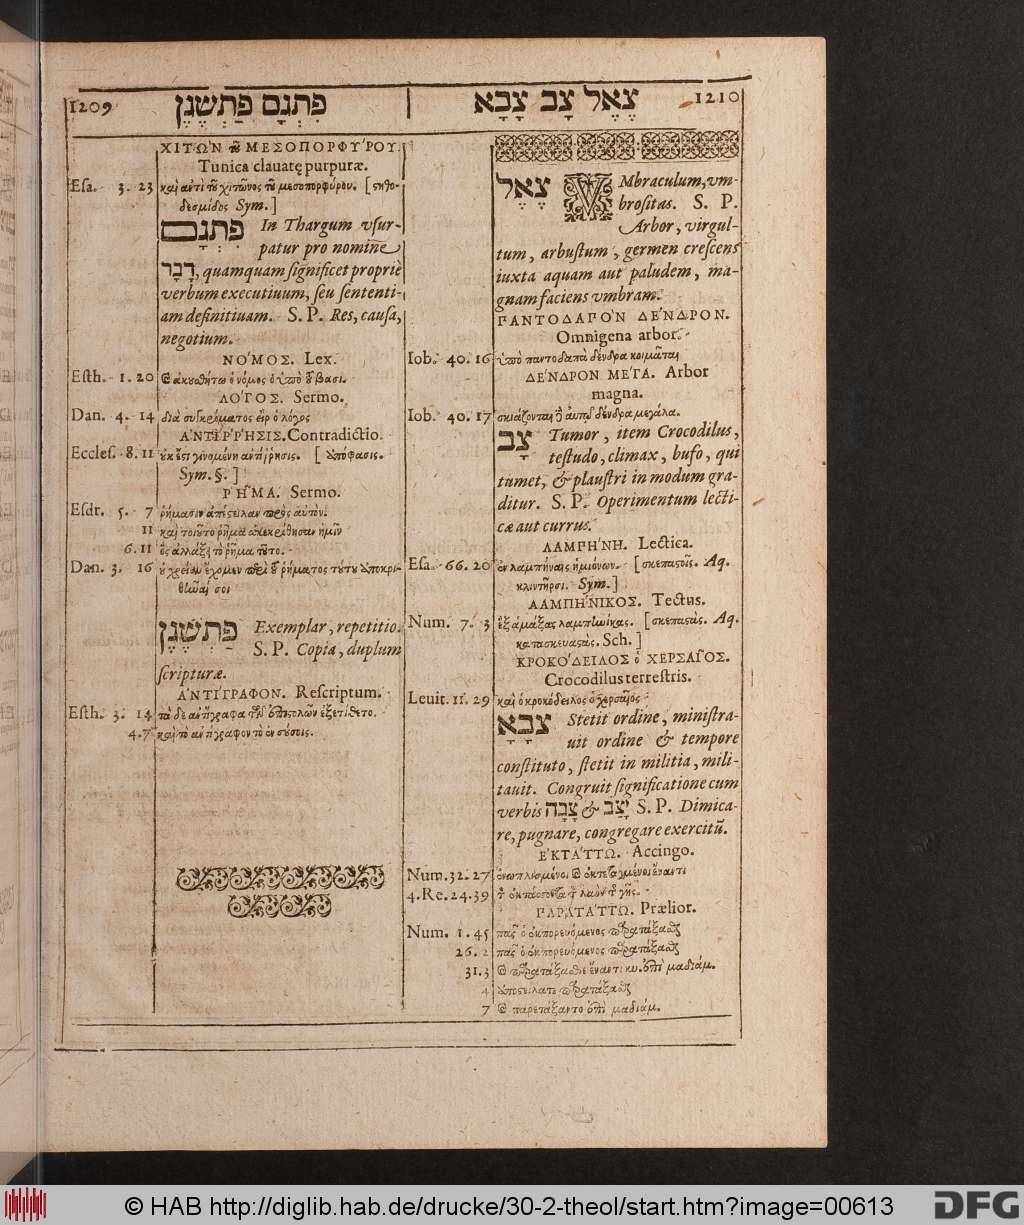 1209 פִּתְגָם פַּתְשֶׁגֶן
ΧΙΤΩ'Ν τῦ ΜΕΣΟΠΟΡΦΥ'ΡΟΥ.
Tunica clavatę purpuræ.
Esa. 3. 23 καὶ ἀντὶ τοῦ χιτῶνος τοῦ μεσοπορφύρου. [στηθο-
δεσμίδος Sym.]
פִּתְגָם In Thargum vsur-
patur pro nomine
דָבָר, quamquam significet propriè
verbum executiuum, seu sententi-
am definitiuam. S. P. Res, causa,
negotium.
ΝΟ'ΜΟΣ. Lex.
Esth. 1. 20 καὶ ἀκουσθήτω ὁ νόμος ὁ ὑπὸ τοῦ βασι.
ΛΟ'ΓΟΣ. Sermo.
Dan. 4. 14 διὰ συγκρίματος εἲρ ὁ λόγος
ἈΝΤΙ'ΡΡΗΣΙΣ. Contradictio.
Eccles. 8. 11 οὐκ ἔστι γινομένη ἀντίρρησις. [ἀπόφασις.
Sym. §.]
ΡΗ͂ΜΑ. Sermo.
Esdr. 5. 7 ῥήμασιν ἀπέστειλαν πρὸς αὐτόν.
11 καὶ τοιοῦτο ῥῆμα ἀπεκρίθησαν ἡμῖν
6. 11 ὃς ἀλλάξῃ τὸ ῥῆμα τοῦτο.
Dan. 3. 16 οὐ χρείαν ἔχομεν περὶ τοῦ ῥήματος τούτου ἀποκρι-
θῆναί σοι
פַּתְשֶׁגֶן Exemplar, repetitio.
S. P. Copia, duplum
scripturæ.
ἈΝΤΙ'ΓΡΑΦΟΝ. Rescriptum.
Esth. 3. 14 τὰ δὲ ἀντίγραφα τῶν ἐπιστολῶν ἐξετίθετο.
4. 7 καὶ τὸ ἀντίγραφον τὸ ἐν σούσοις.
צֶאֶל צָב צָבָא 1210
צֶאֶל VMbraculum, vm-
brositas. S. P.
Arbor, virgul-
tum, arbustum, germen crescens
iuxta aquam aut paludem, ma-
gnam faciens vmbram.
ΠΑΝΤΟΔΑΠΟ'Ν ΔΕ'ΝΔΡΟΝ.
Omnigena arbor.
Iob. 40. 16 ὑπὸ παντοδαπὰ δένδρα κοιμᾶται
ΔΕ'ΝΔΡΟΝ ΜΕ'ΓΑ. Arbor
magna.
Iob. 40. 17 σκιάζονται ἐν αὐτῷ δένδρα μεγάλα.
צָב Tumor, item Crocodilus,
testudo, climax, bufo, qui
tumet, & plaustri in modum gra-
ditur. S. P. Operimentum lecti-
cæ aut currus.
ΛΑΜΠΗ'ΝΗ. Lectica.
Esa. 66. 20 ἐν λαμπήναις ἡμιόνων. [σκεπαστοῖς. Aq.
κλιντῆρσι. Sym.]
ΛΑΜΠΗΝΙΚΟΣ. Tectus.
Num. 7. 3 ἓξ ἁμάξας λαμπηνικάς. [σκεπαστάς. Aq.
κατασκευαστάς. Sch.]
ΚΡΟΚΟ'ΔΕΙΛΟΣ ὁ ΧΕΡΣΑΙ͂ΟΣ.
Crocodilus terrestris.
Leuit. 11. 29 καὶ ὁ κροκόδειλος ὁ χερσαῖος
צָבָא Stetit ordine, ministra-
uit ordine & tempore
constituto, stetit in militia, mili-
tauit. Congruit significatione cum
verbis צָבָה & יָצַב S. P. Dimica-
re, pugnare, congregare exercitũ.
ἘΚΤΑ'ΤΤΩ. Accingo.
Num. 32. 27 ἐνωπλισμένοι καὶ ἐκτεταγμένοι ἔναντι
4. Re. 24. 39 τὸν ἐκτάσσοντα τὸν λαὸν τῆς γῆς.
ΠΑΡΑΤΑ'ΤΤΩ. Prælior.
Num. 1. 45 πᾶς ὁ ἐκπορευόμενος παρατάξασθαι
26. 2 πᾶς ὁ ἐκπορευόμενος παρατάξασθαι
31. 3 καὶ παρατάξασθε ἔναντι κυ. ἐπὶ μαδιάμ.
4 ἀποστείλατε παρατάξασθαι
7 καὶ παρετάξαντο ἐπὶ μαδιάμ.
© HAB http://diglib.hab.de/drucke/30-2-theol/start.htm?image=00613
DFG